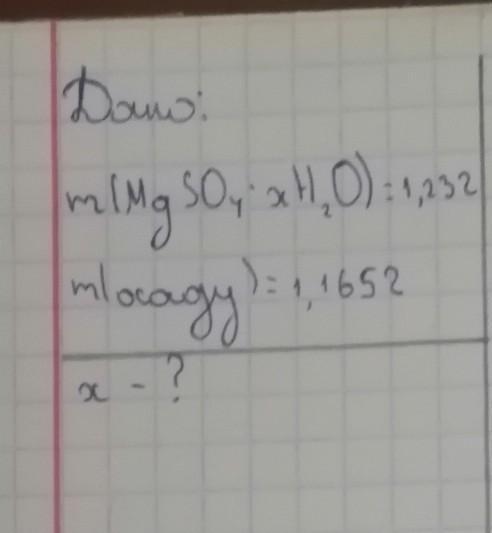 Дано:
m(MgSO₄·xH₂O)=1,23г
m(осаду)=1,165г
x - ?